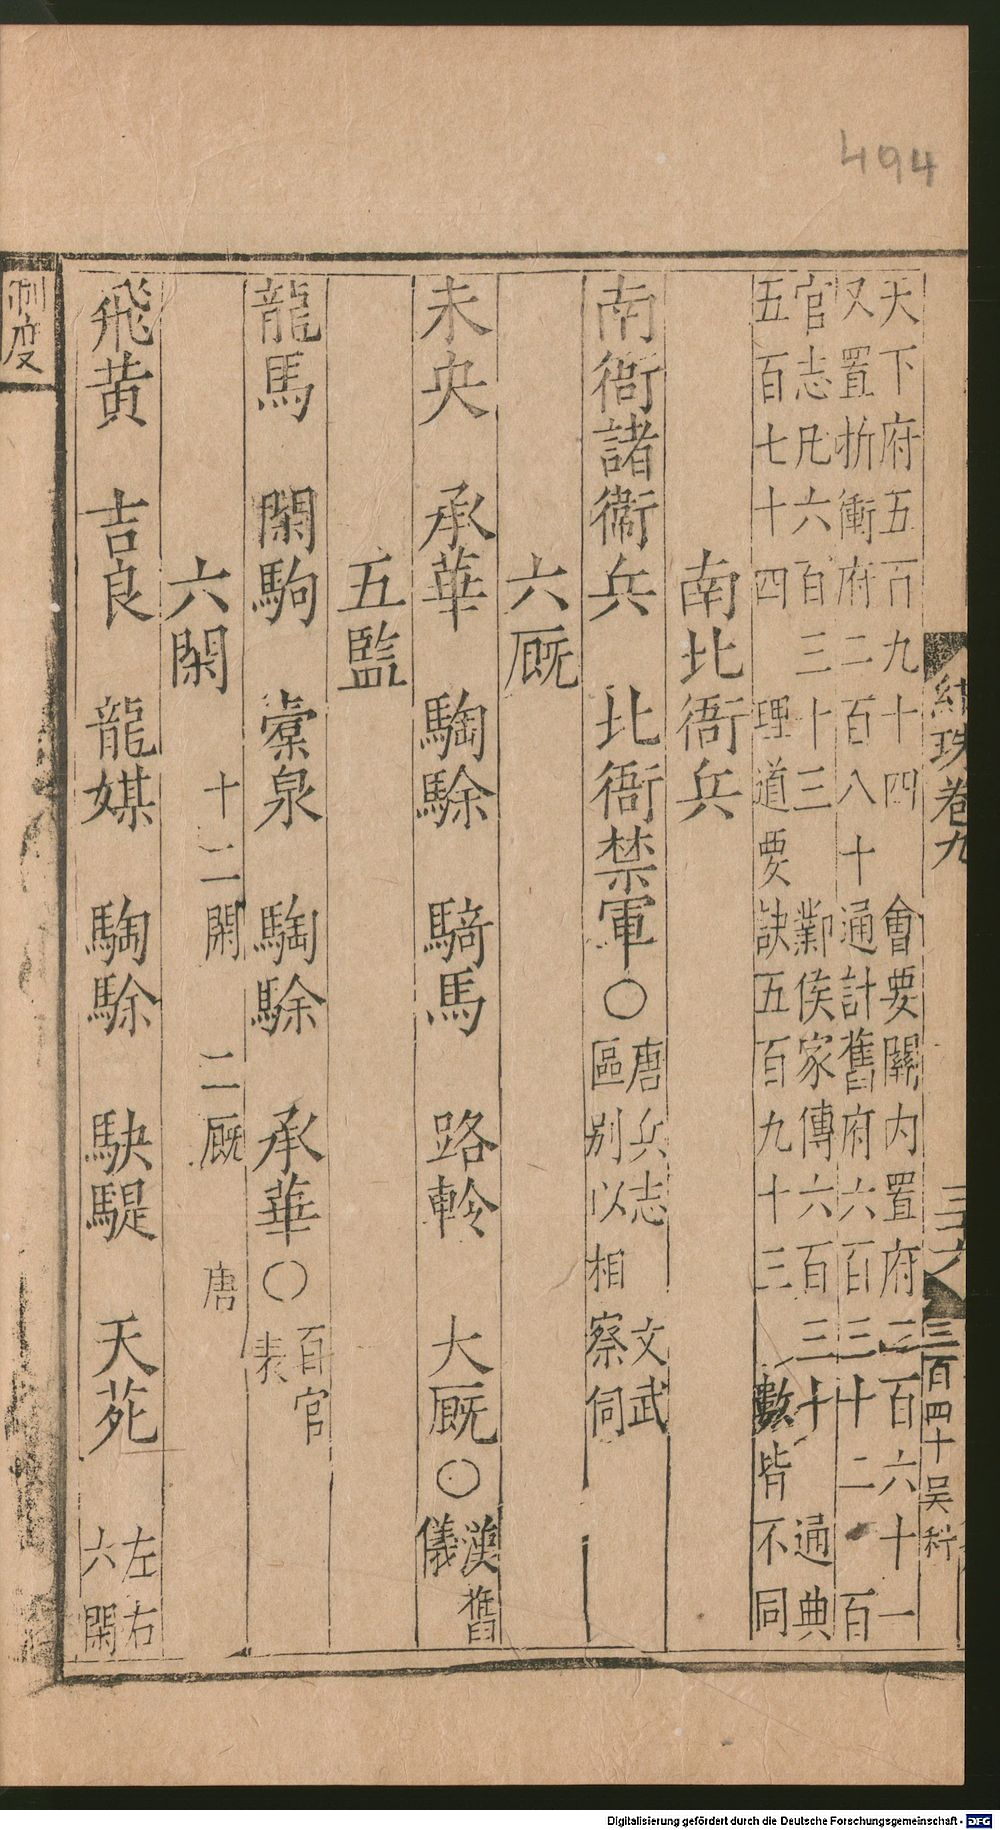 494
紺珠卷九
三六
三百四十吴秆
天下府五百九十四 會要關内置府二百六十一
又置折衝府二百八十通計舊府六百三十二 百
官志凡六百三十三 鄴侯家傳六百三十 通典
五百七十四 理道要訣五百九十三 數皆不同
南北衙兵
南衙諸衛兵 北衙禁軍○唐兵志 文武
區別以相察伺
六廐
未央 承華 騊駼 騎馬 路軨 大廐○漢舊
儀
五監
龍馬 閑駒 橐泉 騊駼 承華○百官
表
六閑 十二閑 二廐 唐
飛黄 吉良 龍媒 騊駼 駃騠 天苑 左右
六閑
制度
Digitalisierung gefördert durch die Deutsche Forschungsgemeinschaft - DFG